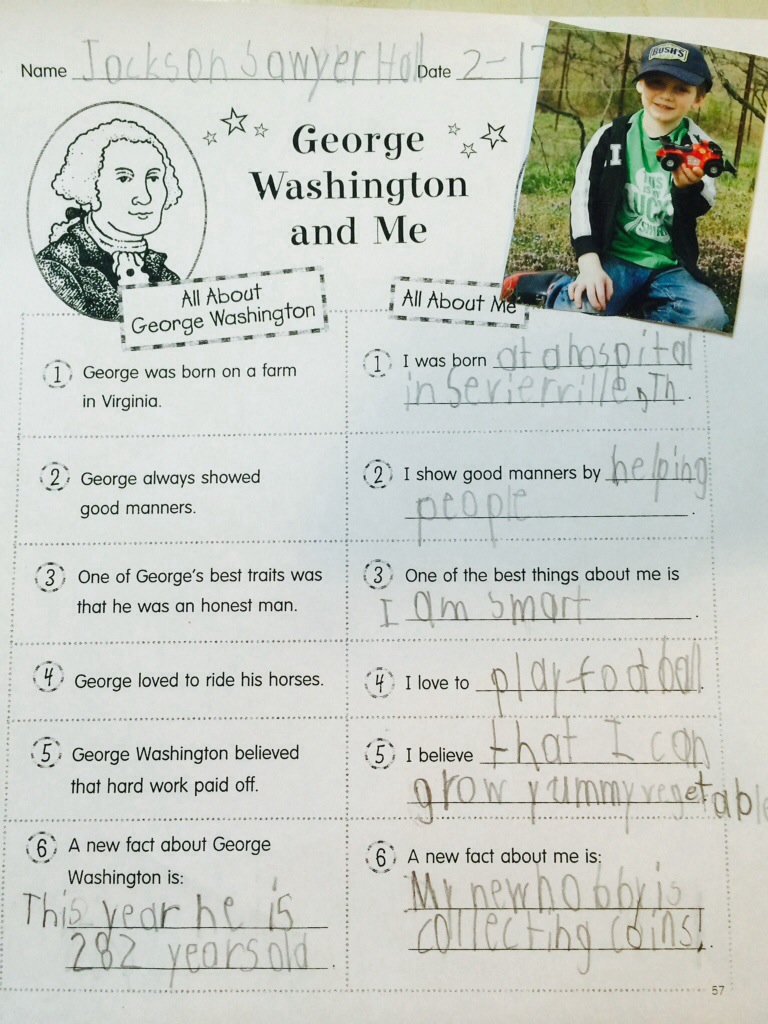 Name Jackson Sawyer Hall Date 2-17
BUSH'S
I
George
Washington
and Me
All About
George Washington
All About Me
1 George was born on a farm
in Virginia.
1 I was born at a hospital
in Sevierville, Tn.
2 George always showed
good manners.
2 I show good manners by helping
people.
3 One of George's best traits was
that he was an honest man.
3 One of the best things about me is
I am smart.
4 George loved to ride his horses.
4 I love to play football.
5 George Washington believed
that hard work paid off.
5 I believe that I can
grow yummy vegetable
6 A new fact about George
Washington is:
This year he is
282 years old.
6 A new fact about me is:
My new hobby is
collecting coins!.
57